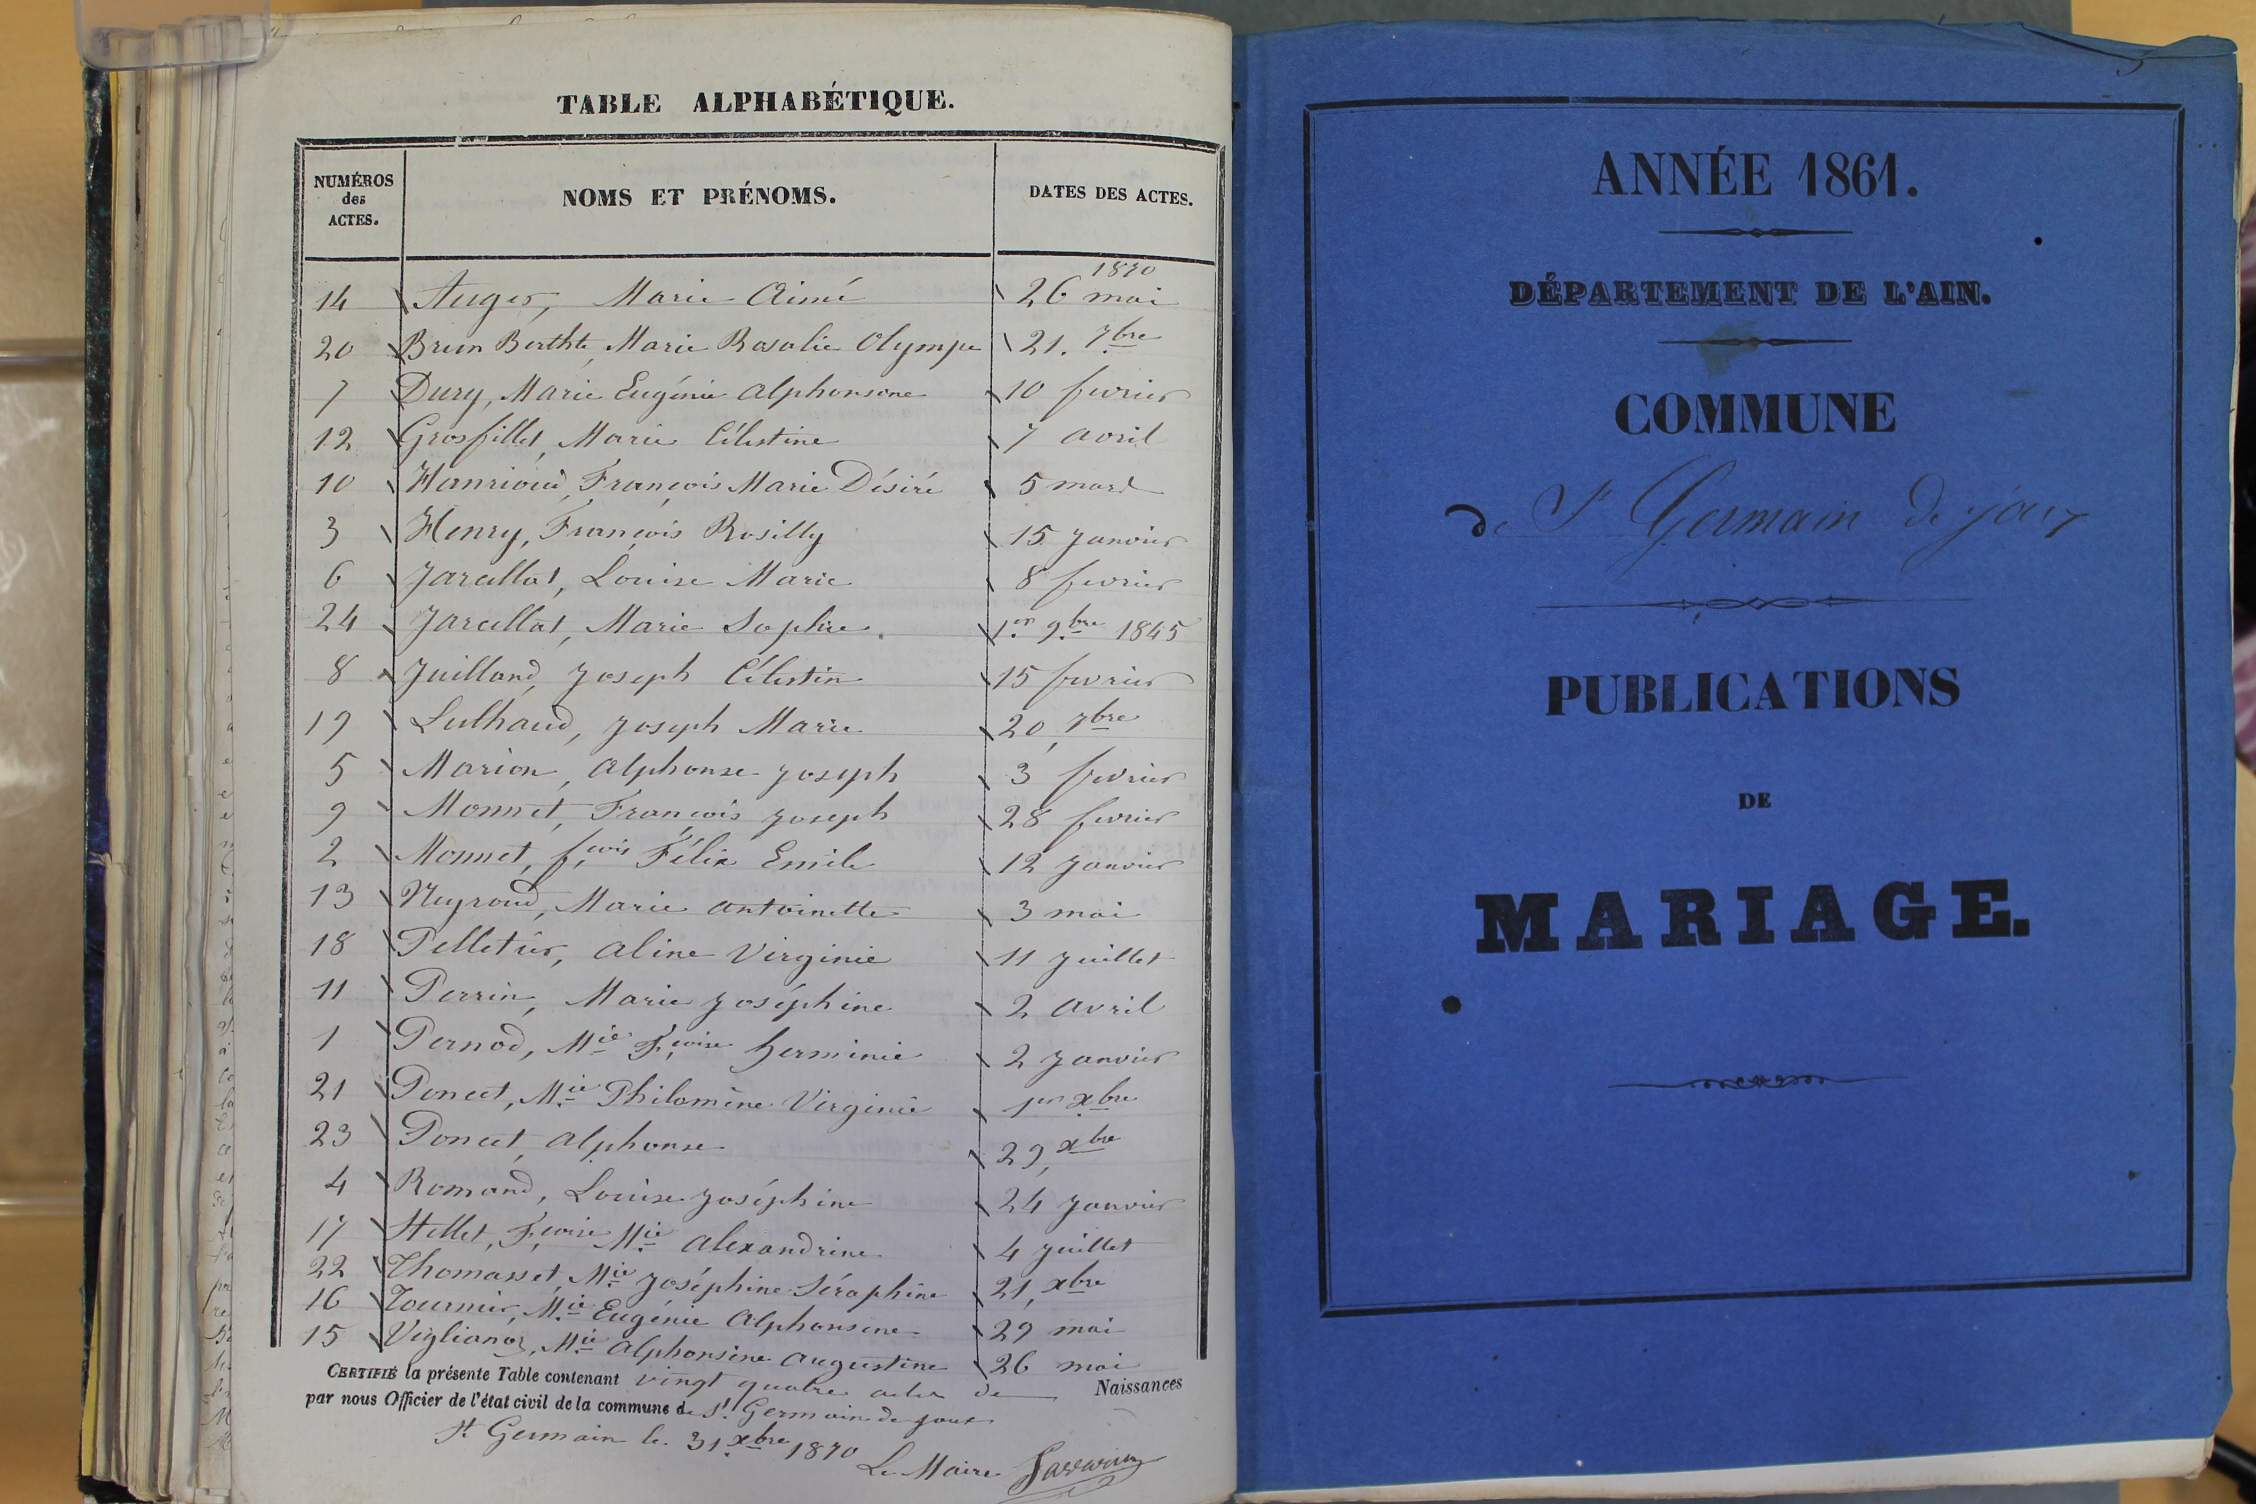 TABLE ALPHABÉTIQUE.
NUMÉROS
des
ACTES.
NOMS ET PRÉNOMS.
DATES DES ACTES.
1870
14 Auger, Marie Aimé 26 mai
20 Brun Berthe, Marie Rosalie Olympe 21. 7bre
7 Dury, Marie Eugénie Alphonsine 10 fevrier
12 Grosfillet, Marie Célestine 7 avril
10 Hanrioud, François Marie Désiré 5 mars
3 Henry, François Rosilly 15 Janvier
6 Jarcellat, Louise Marie 8 fevrier
24 Jarcellat, Marie Sophie 1er 9bre 1845
8 Juilland, Joseph Célestin 15 fevrier
19 Lulhaud, Joseph Marie 20, 7bre
5 Marion, Alphonse Joseph 3 fevrier
9 Monnet, François Joseph 28 fevrier
2 Monnet, fçois Félix Emile 12 Janvier
13 Neyroud, Marie Antoinette 3 mai
18 Pelletier, Aline Virginie 11 Juillet
11 Perrin, Marie Joséphine 2 avril
1 Pernod, Mie Fçoise herminie 2 Janvier
21 Poncet, Mie Philomène Virginie 1er xbre
23 Poncet, Alphonse 29, xbre
4 Romand, Louise Joséphine 24 Janvier
17 Hellet, Fçoise Mie Alexandrine 4 Juillet
22 Thomasset, Mie Joséphine Séraphine 21, xbre
16 Tournier, Mie Eugénie Alphonsine 29 mai
15 Viglianoz, Mie Alphonsine Augustine 26 mai
CERTIFIÉ la présente Table contenant vingt quatre actes de Naissances
par nous Officier de l'état civil de la commune de St Germain de Joux
St Germain le 31 xbre 1870
Le Maire
ANNÉE 1861.
DÉPARTEMENT DE L'AIN.
COMMUNE
de St Germain de joux
PUBLICATIONS
DE
MARIAGE.